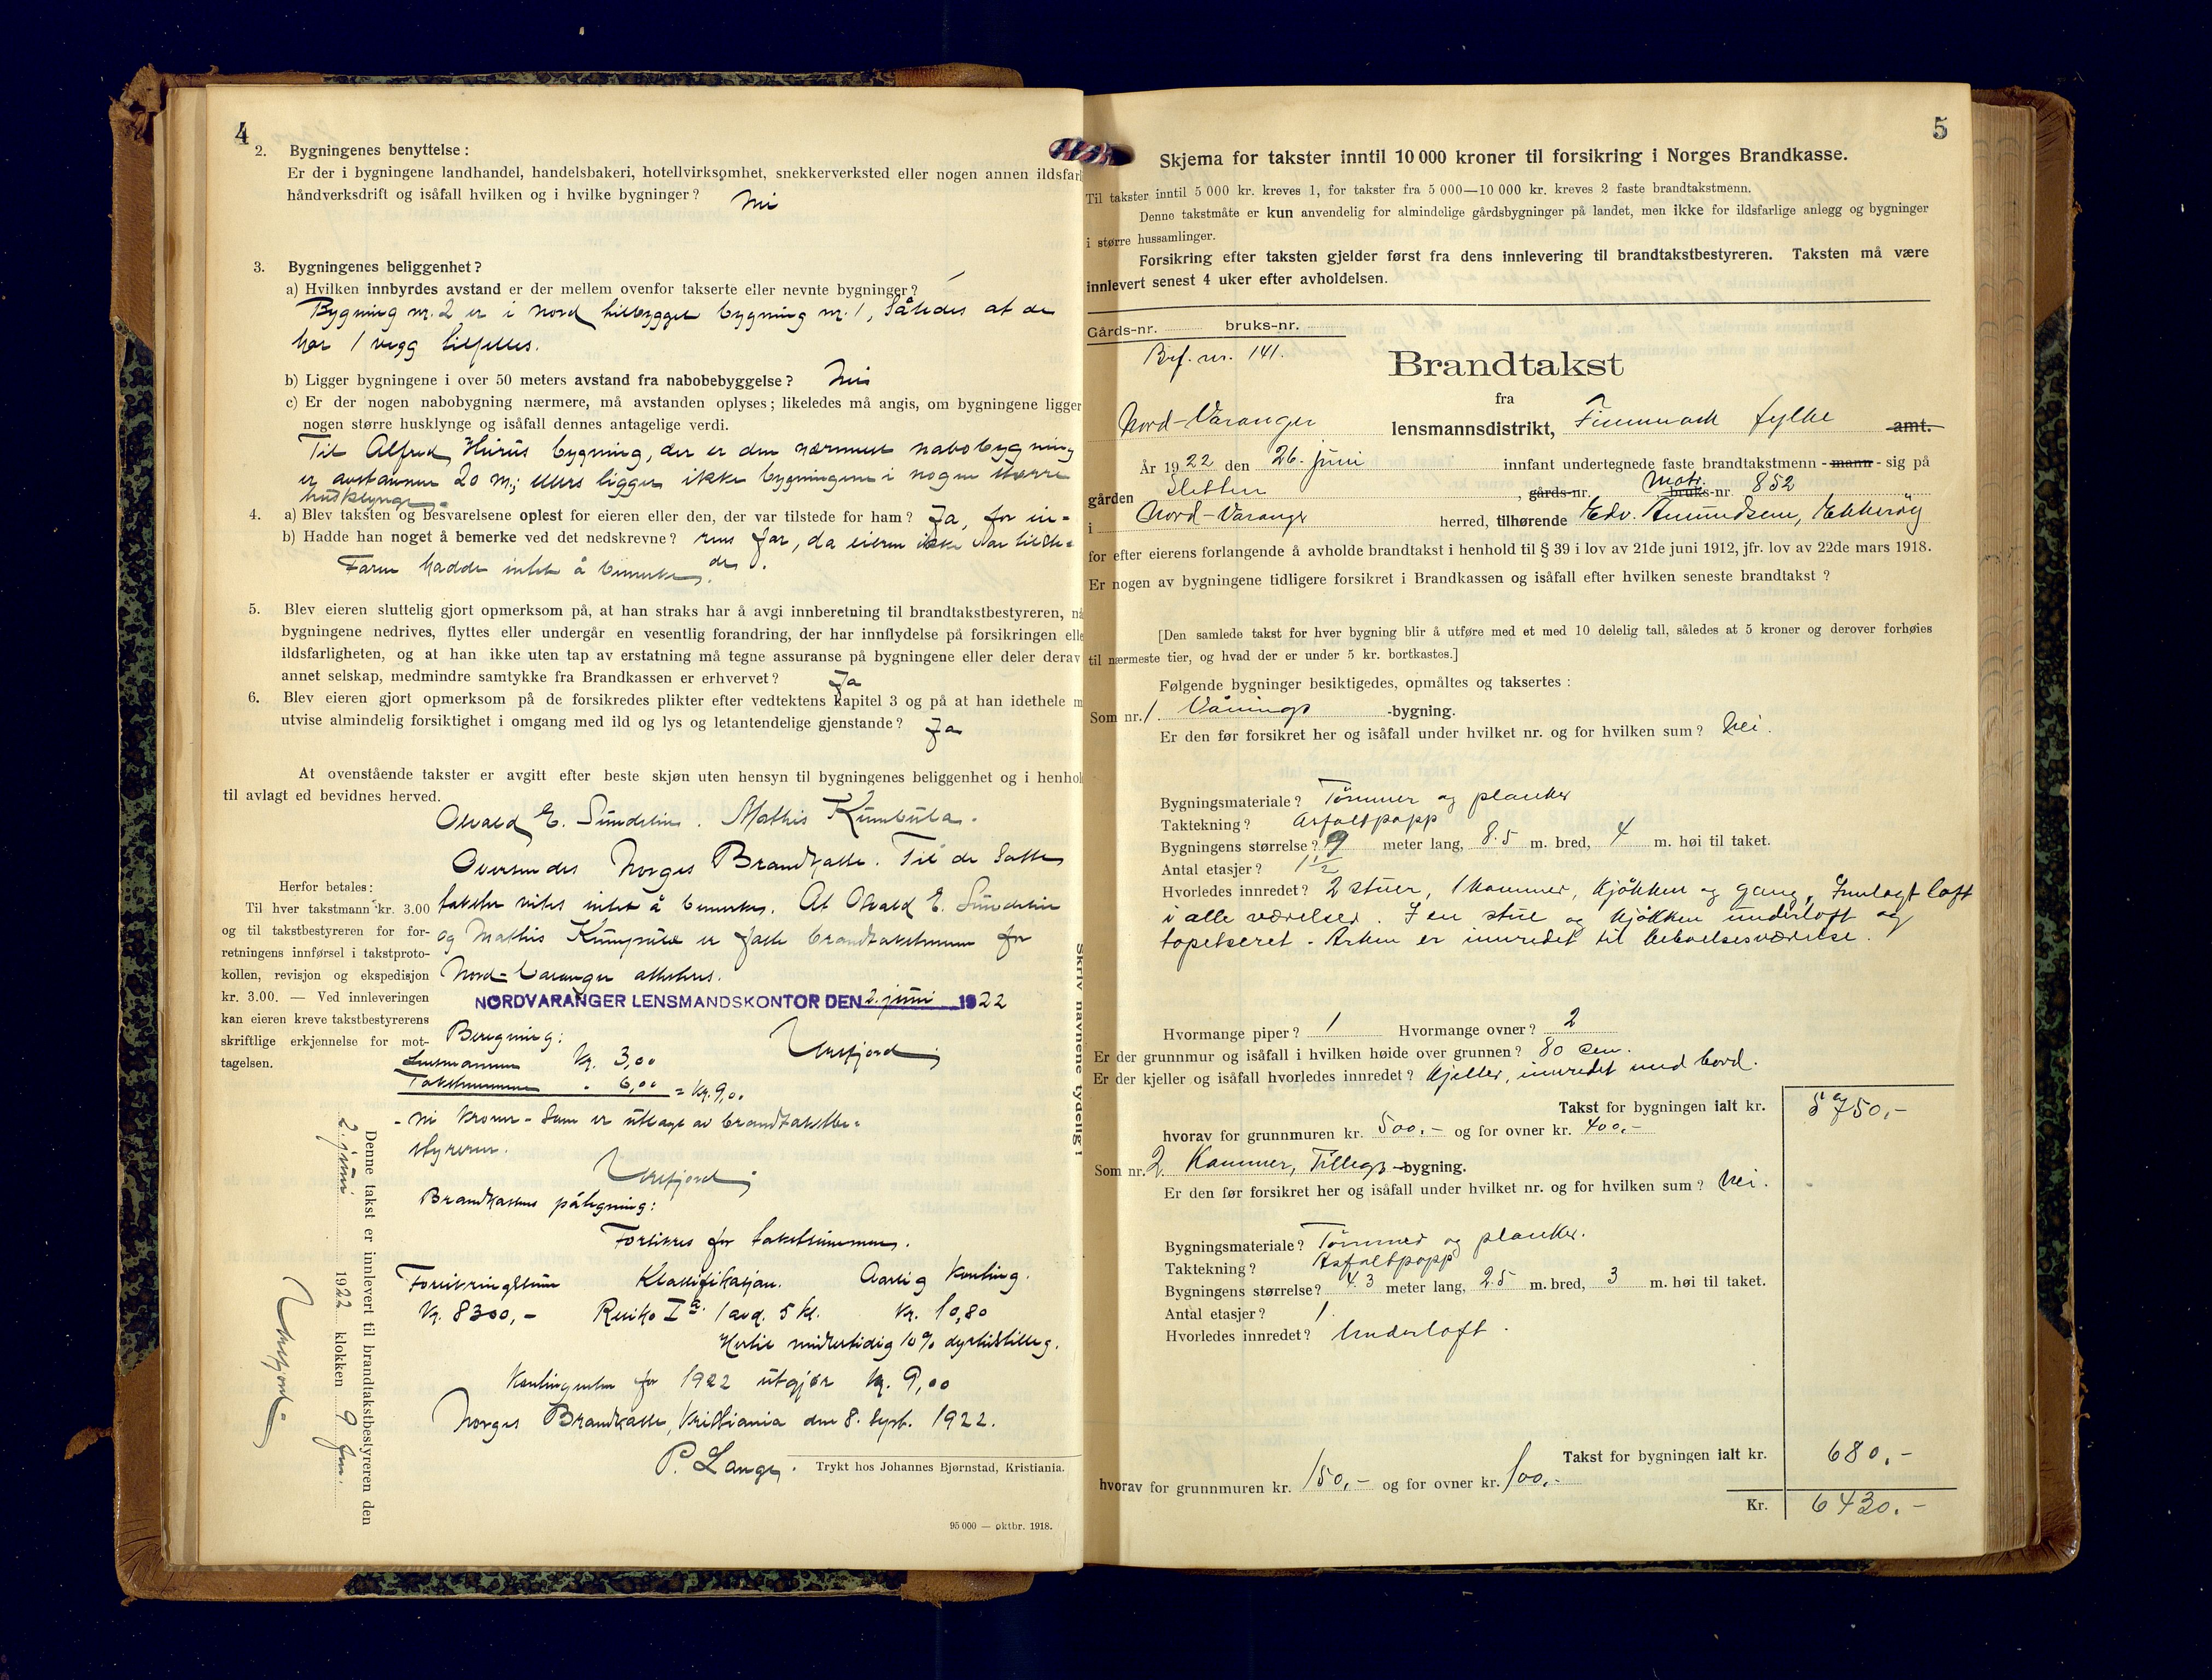 4
2. Bygningenes benyttelse:
Er der i bygningene landhandel, handelsbakeri, hotellvirksomhet, snekkerverksted eller nogen annen ildsfarl
håndverksdrift og isåfall hvilken og i hvilke bygninger? Nei
3. Bygningenes beliggenhet?
a) Hvilken innbyrdes avstand er der mellem ovenfor takserte eller nevnte bygninger?
Bygning nr. 2 er i nord tilbygget bygning nr. 1, således at de
har 1 vegg tilfelles.
b) Ligger bygningene i over 50 meters avstand fra nabobebyggelse? Nei
c) Er der nogen nabobygning nærmere, må avstanden oplyses; likeledes må angis, om bygningene ligger
nogen større husklynge og isåfall dennes antagelige verdi.
Til Alfred bygning, der er den nærmeste nabobygning
er avstanden 20 m; ellers ligger ikke bygningene i nogen større
husklynge.
4. a) Blev taksten og besvarelsene oplest for eieren eller den, der var tilstede for ham? Ja, for eie-
b) Hadde han noget å bemerke ved det nedskrevne? rens far, da eieren ikke var tilste-
Faren hadde intet å bemerke. de.
5. Blev eieren sluttelig gjort opmerksom på, at han straks har å avgi innberetning til brandtakstbestyreren, nå
bygningene nedrives, flyttes eller undergår en vesentlig forandring, der har innflydelse på forsikringen elle
ildsfarligheten, og at han ikke uten tap av erstatning må tegne assuranse på bygningene eller deler derav
annet selskap, medmindre samtykke fra Brandkassen er erhvervet? Ja
6. Blev eieren gjort opmerksom på de forsikredes plikter efter vedtektens kapitel 3 og på at han idethele m
utvise almindelig forsiktighet i omgang med ild og lys og letantendelige gjenstande? Ja
At ovenstående takster er avgitt efter beste skjøn uten hensyn til bygningenes beliggenhet og i henhol
til avlagt ed bevidnes herved.
Osvald E. Sundelin. Mathis Kumbula.
Oversendes Norges Brandkasse. Til de satte
takster vites intet å bemerke. At Osvald E. Sundelin
og Mathis er faste brandtakstmenn for
Nord-Varanger attesteres.
NORDVARANGER LENSMANDSKONTOR DEN 2. juni 1922
Herfor betales:
Til hver takstmann kr. 3.00
og til takstbestyreren for for-
retningens innførsel i takstproto-
kollen, revisjon og ekspedisjon
kr. 3.00. — Ved innleveringen
kan eieren kreve takstbestyrerens
skriftlige erkjennelse for mot-
tagelsen.
Beregning:
Lensmannen kr. 3,00
Takstmennene " 6,00 = kr. 9,00
- ni kroner - som er utlagt av brandtakstbe-
styreren.
Brandkassens påtegning:
Forsikres for takstsummen.
Forsikringssum Klassifikasjon. Aarlig konting.
Kr. 8300,- Risiko I a. 1 avd. 5 kl. kr. 10,80
Hertil midlertidig 10% dyrtidstillegg.
Kontingenten for 1922 utgjør kr. 9,00
Norges Brandkasse, Kristiania den 8. Sept. 1922.
P. Lange.
Trykt hos Johannes Bjørnstad, Kristiania.
95 000 — oktbr. 1918.
Denne takst er innlevert til brandtakstbestyreren den
2. juni 1922 klokken 9 fm.
Skriv navnene tydelig!
5
Skjema for takster inntil 10 000 kroner til forsikring i Norges Brandkasse.
Til takster inntil 5 000 kr. kreves 1, for takster fra 5 000—10 000 kr. kreves 2 faste brandtakstmenn.
Denne takstmåte er kun anvendelig for almindelige gårdsbygninger på landet, men ikke for ildsfarlige anlegg og bygninger
i større hussamlinger.
Forsikring efter taksten gjelder først fra dens innlevering til brandtakstbestyreren. Taksten må være
innlevert senest 4 uker efter avholdelsen.
Gårds-nr. bruks-nr.
Brf. nr. 141.
Brandtakst
fra
Nord-Varanger lensmannsdistrikt, Finnmark fylke amt.
År 1922 den 26. juni innfant undertegnede faste brandtakstmenn - mann - sig på
gården Sletten, gårds-nr. Matr. bruks-nr. 852
i Nord-Varanger herred, tilhørende Edv. Amundsen, Ekkerøy
for efter eierens forlangende å avholde brandtakst i henhold til § 39 i lov av 21de juni 1912, jfr. lov av 22de mars 1918.
Er nogen av bygningene tidligere forsikret i Brandkassen og isåfall efter hvilken seneste brandtakst?
[Den samlede takst for hver bygning blir å utføre med et med 10 delelig tall, således at 5 kroner og derover forhøies
til nærmeste tier, og hvad der er under 5 kr. bortkastes.]
Følgende bygninger besiktigedes, opmåltes og taksertes:
Som nr. 1. Vånings -bygning.
Er den før forsikret her og isåfall under hvilket nr. og for hvilken sum? Nei.
Bygningsmateriale? Tømmer og planker
Taktekning? Asfaltpapp
Bygningens størrelse? 9 meter lang, 8.5 m. bred, 4 m. høi til taket.
Antal etasjer? 1 1/2
Hvorledes innredet? 2 stuer, 1 kammer, kjøkken og gang, Innlagt loft
i alle værelser. I en stue og kjøkken underloft og
tapetseret. Arken er innredet til beboelsesværelse.
Hvormange piper? 1 Hvormange ovner? 2
Er der grunnmur og isåfall i hvilken høide over grunnen? 80 cm.
Er der kjeller og isåfall hvorledes innredet? Kjeller, innredet med bord.
Takst for bygningen ialt kr. 5750,-
hvorav for grunnmuren kr. 500.- og for ovner kr. 400.-
Som nr. 2. Kammer, Tillegs -bygning.
Er den før forsikret her og isåfall under hvilket nr. og for hvilken sum? Nei.
Bygningsmateriale? Tømmer og planker.
Taktekning? Asfaltpapp
Bygningens størrelse? 4.3 meter lang, 2.5 m. bred, 3 m. høi til taket.
Antal etasjer? 1.
Hvorledes innredet? Underloft.
Takst for bygningen ialt kr. 680.-
hvorav for grunnmuren kr. 150,- og for ovner kr. 100.-
Kr. 6430.-